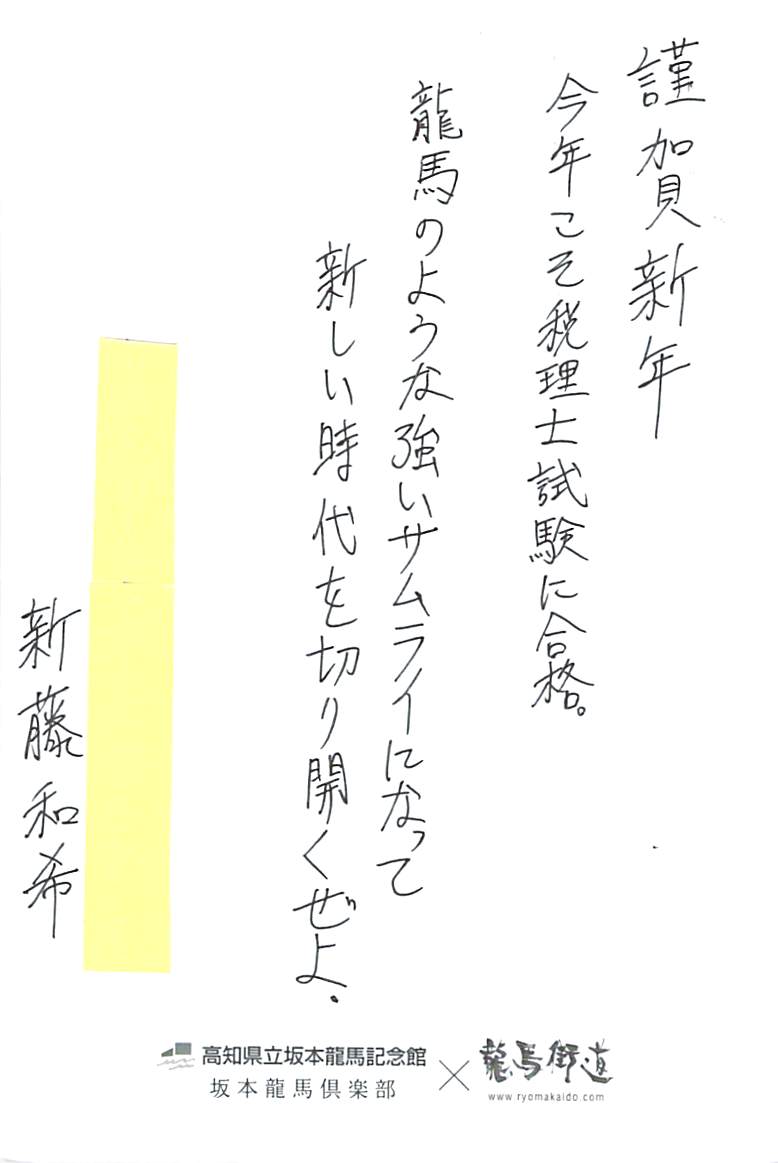 謹賀新年
今年こそ税理士試験に合格。
龍馬のような強いサムライになって
新しい時代を切り開くぜよ.
新藤和希
高知県立坂本龍馬記念館
坂本龍馬倶楽部
×
龍馬街道
www.ryomakaido.com